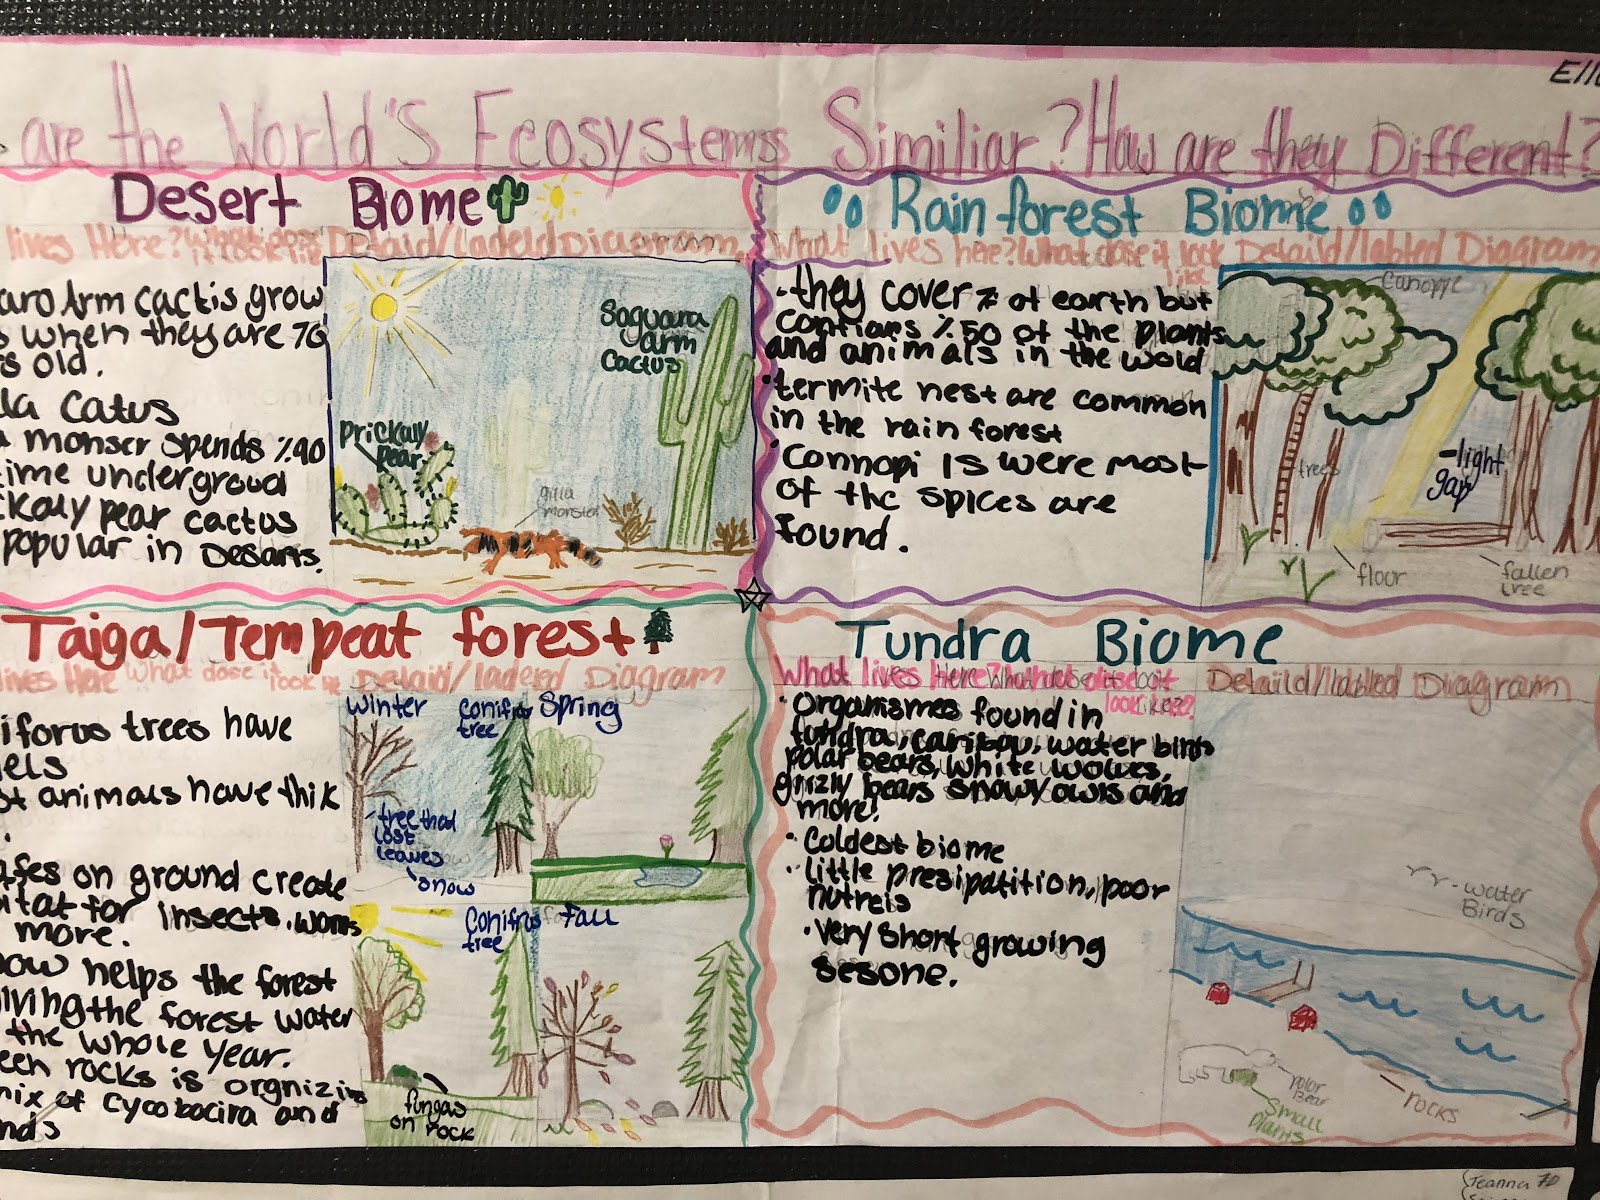 are the World's Ecosystems Similiar? How are they Different?
Desert Biome
lives Here?
Detaild/ladeld Diagram
aro Arm cactis grow
s when they are 70
s old.
la Catus
a monser spends %90
time undergroud
ckaly pear cactus
popular in Desarts.
Saguara
arm
cactus
Prickaly
pear
gilla
monster
Rain forest Biome
What lives here? What dose it look
like
Detaild/labled Diagram
•they cover % of earth but
contians %50 of the plants
and animals in the wold
•termite nest are common
in the rain forest
•Connopi is were most
of the spices are
found.
Canopye
trees
-light
gap
floor
fallen
tree
Taiga/Tempeat forest
lives Here What dose it
look
Detaild/laderd Diagram
iforus trees have
els
st animals have thik
on ground create
itat for insects, worms
more.
ow helps the forest
iving the forest water
the whole year.
een rocks is orgnizim
mix of cycobacira and
nds
Winter
conifrus
tree
Spring
tree that
lost
leaves
snow
Conifrus
tree
Fall
fungas
on rock
Tundra Biome
What lives Here? What dose it
look like?
Detaild/labled Diagram
•Organismes found in
tundra, caribou, water birds
polar bears, white wolves,
grizily bears snowy owls and
more!
•Coldest biome
•little presipatition, poor
nutreis
•Very short growing
sesone.
-water
Birds
polar
Bear
Small
plants
rocks
Teanna 7D